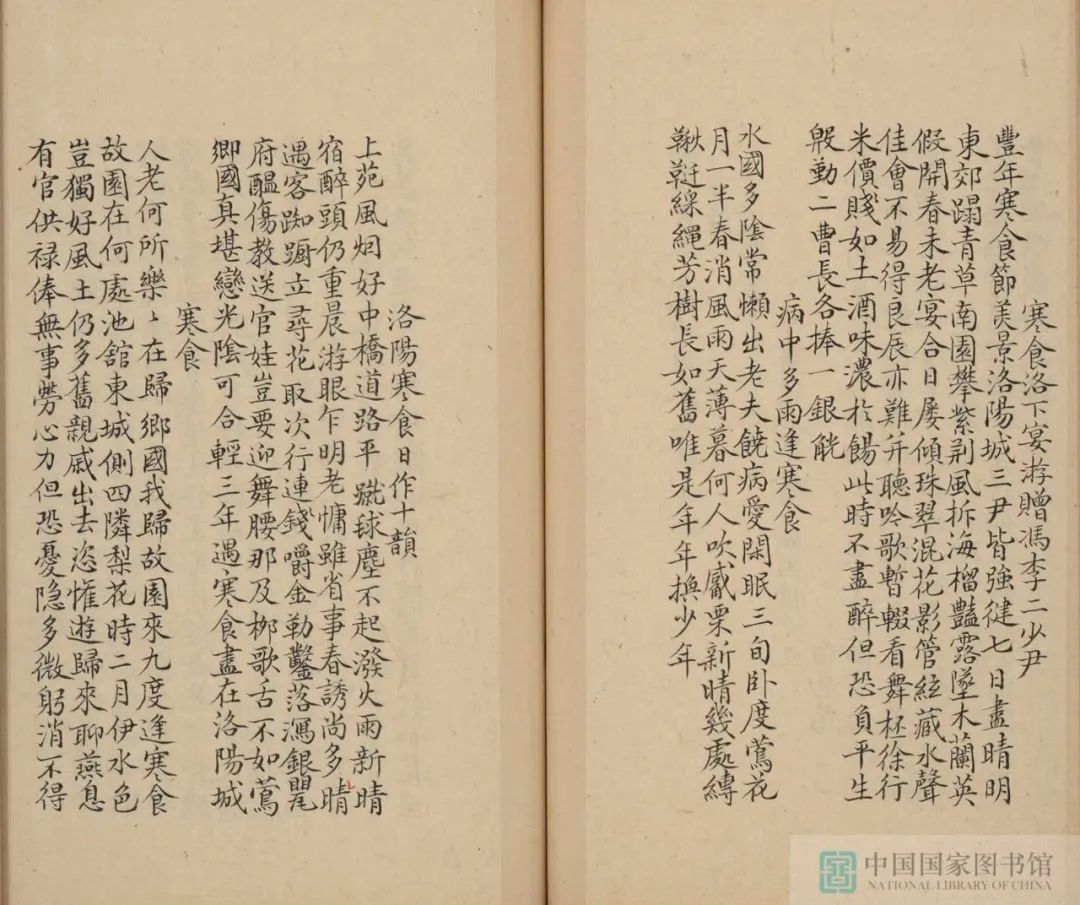 寒食洛下宴游贈馮李二少尹
豐年寒食節美景洛陽城三尹皆強健七日盡晴明
東郊蹋青草南園攀紫荆風拆海榴豔露墜木蘭英
假開春未老宴合日屡傾珠翠混花影管絃藏水聲
佳會不易得良辰亦難并聽吟歌暫輟看舞柸徐行
米價賤如土酒味濃於餳此時不盡醉但恐負平生
殷勤二曹長各捧一銀觥
病中多雨逢寒食
水國多陰常懶出老夫饒病愛閑眠三旬卧度鶯花
月一半春消風雨天薄暮何人吹觱栗新晴幾處縳
鞦韆綵繩芳樹長如舊唯是年年換少年
洛陽寒食日作十韻
上苑風烟好中橋道路平蹴球塵不起潑火雨新晴
宿醉頭仍重晨游眼乍明老慵雖省事春誘尚多晴
遇客踟蹰立尋花取次行連錢嚼金勒鑿落瀉銀罌
府醞傷教送官娃豈要迎舞腰那及栁歌舌不如鶯
鄉國真堪戀光陰可合輕三年遇寒食盡在洛陽城
寒食
人老何所樂〻在歸鄉國我歸故園來九度逢寒食
故園在何處池舘東城側四隣梨花時二月伊水色
豈獨好風土仍多舊親戚出去恣懽遊歸來聊燕息
有官供禄俸無事勞心力但恐憂隐多微躬消不得
中国国家图书馆
NATIONAL LIBRARY OF CHINA